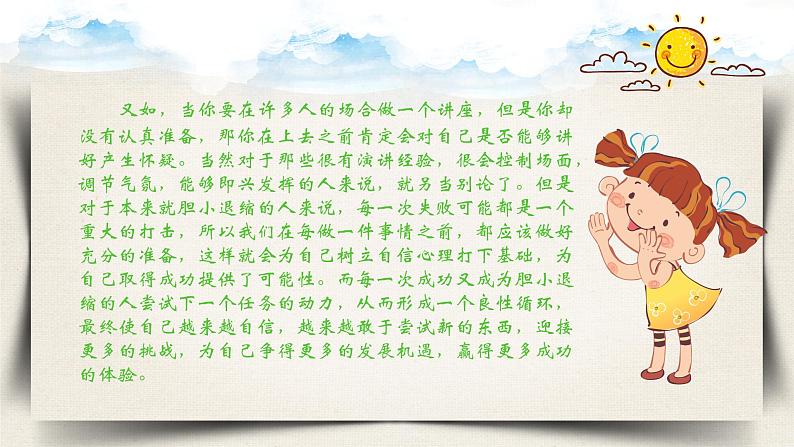 又如，当你要在许多人的场合做一个讲座，但是你却
没有认真准备，那你在上去之前肯定会对自己是否能够讲
好产生怀疑。当然对于那些很有演讲经验，很会控制场面，
调节气氛，能够即兴发挥的人来说，就另当别论了。但是
对于本来就胆小退缩的人来说，每一次失败可能都是一个
重大的打击，所以我们在每做一件事情之前，都应该做好
充分的准备，这样就会为自己树立自信心理打下基础，为
自己取得成功提供了可能性。而每一次成功又成为胆小退
缩的人尝试下一个任务的动力，从而形成一个良性循环，
最终使自己越来越自信，越来越敢于尝试新的东西，迎接
更多的挑战，为自己争得更多的发展机遇，赢得更多成功
的体验。